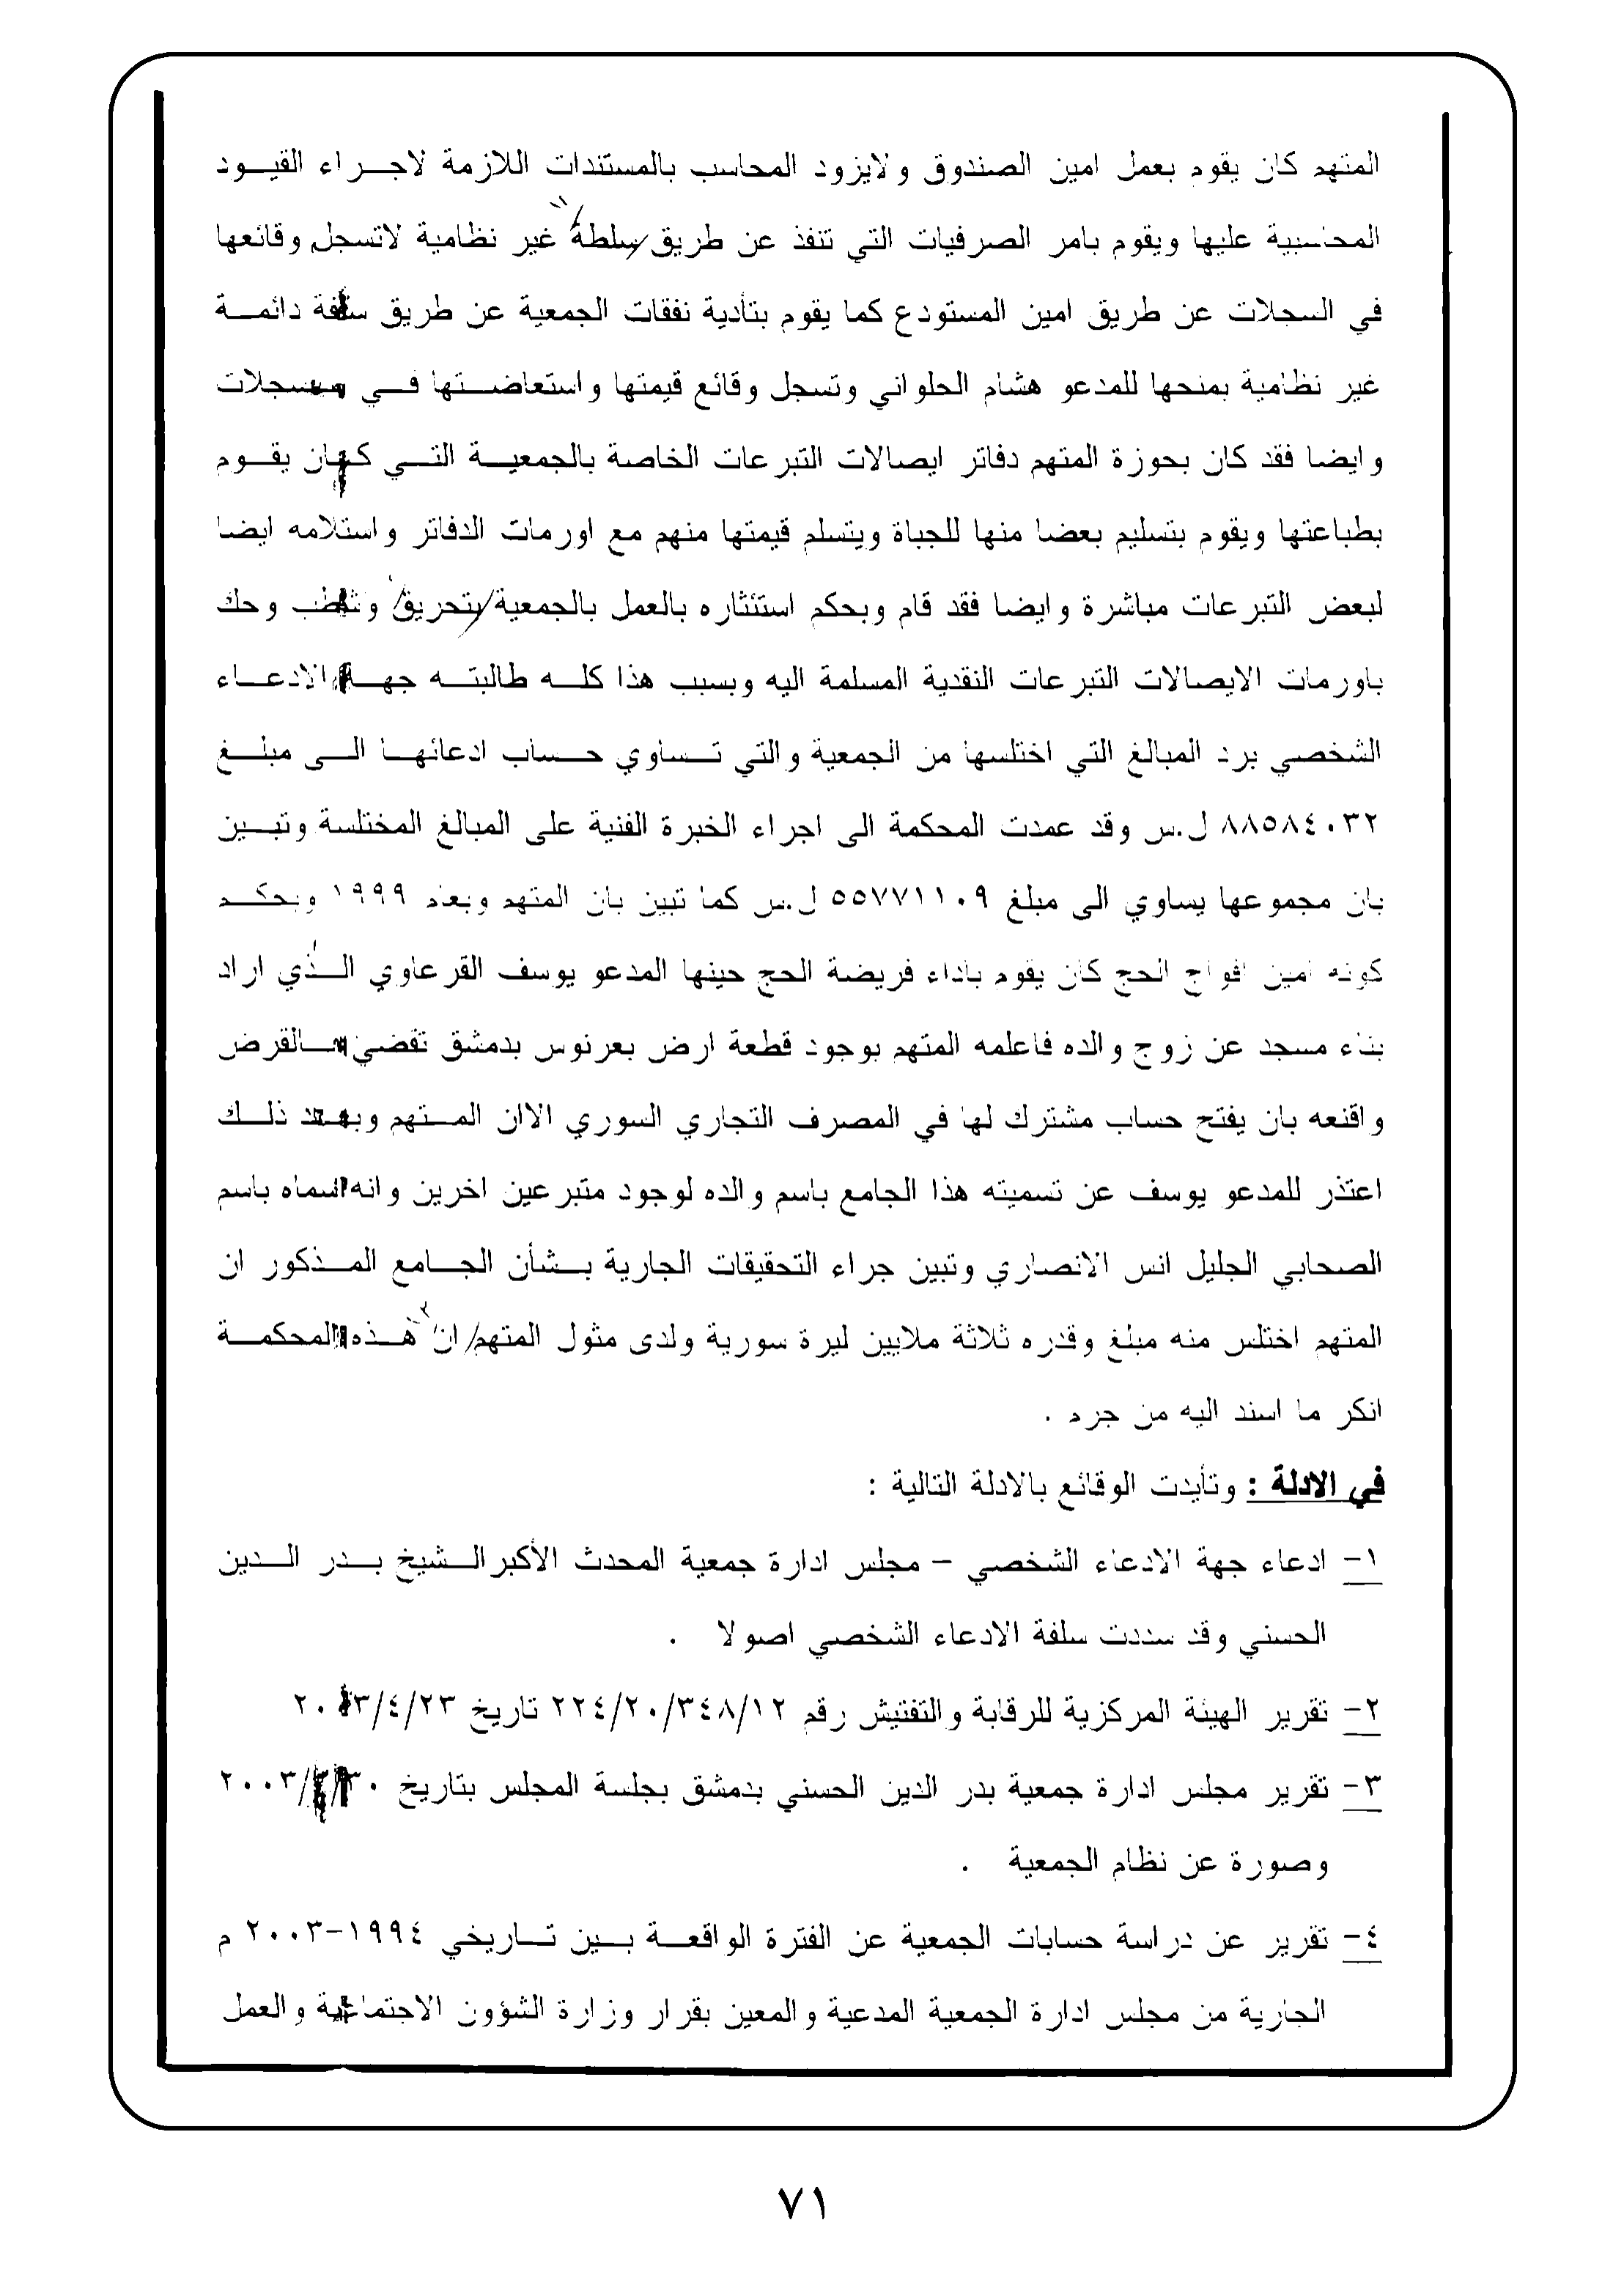 المتهم كان يقوم بعمل امين الصندوق ولايزود المحاسب بالمستندات اللازمة لاجراء القيود
المحاسبية عليها ويقوم بامر الصرفيات التي تنفذ عن طريق/سلطة غير نظامية لاتسجل وقائعها
في السجلات عن طريق امين المستودع كما يقوم بتأدية نفقات الجمعية عن طريق سلفة دائمة
غير نظامية بمنحها للمدعو هشام الحلواني وتسجل وقائع قيمتها واستعاضتها في سجلات
وايضا فقد كان بحوزة المتهم دفاتر ايصالات التبرعات الخاصة بالجمعية التي كان يقوم
بطباعتها ويقوم بتسليم بعضا منها للجباة ويتسلم قيمتها منهم مع اورمات الدفاتر واستلامه ايضا
لبعض التبرعات مباشرة وايضا فقد قام وبحكم استئثاره بالعمل بالجمعية/بتحريق وشطب وحك
باورمات الايصالات التبرعات النقدية المسلمة اليه وبسبب هذا كله طالبته جهة الادعاء
الشخصي برد المبالغ التي اختلسها من الجمعية والتي تساوي حساب ادعائها الى مبلغ
٨٨٥٨٤٠٣٢ ل.س وقد عمدت المحكمة الى اجراء الخبرة الفنية على المبالغ المختلسة وتبين
بان مجموعها يساوي الى مبلغ ٥٥٧٧١١٠٩ ل.س كما تبين بان المتهم وبعام ١٩٩٩ وبحكم
كونه امين افواج الحج كان يقوم باداء فريضة الحج حينها المدعو يوسف القرعاوي الذي اراد
بناء مسجد عن زوج والده فاعلمه المتهم بوجود قطعة ارض بعرنوس بدمشق تفضي بالغرض
واقنعه بان يفتح حساب مشترك لها في المصرف التجاري السوري الاان المتهم وبعد ذلك
اعتذر للمدعو يوسف عن تسميته هذا الجامع باسم والده لوجود متبرعين اخرين وانه اسماه باسم
الصحابي الجليل انس الانصاري وتبين جراء التحقيقات الجارية بشأن الجامع المذكور ان
المتهم اختلس منه مبلغ وقدره ثلاثة ملايين ليرة سورية ولدى مثول المتهم/ان هذه المحكمة
انكر ما اسند اليه من جرم .
في الادلة : وتأيدت الوقائع بالادلة التالية :
١- ادعاء جهة الادعاء الشخصي – مجلس ادارة جمعية المحدث الأكبرالشيخ بدر الدين
الحسني وقد سددت سلفة الادعاء الشخصي اصولا .
٢- تقرير الهيئة المركزية للرقابة والتفتيش رقم ٢٢٤/٢٠/٣٤٨/١٢ تاريخ ٢٠٠٣/٤/٢٣
٣- تقرير مجلس ادارة جمعية بدر الدين الحسني بدمشق بجلسة المجلس بتاريخ
وصورة عن نظام الجمعية .
٤- تقرير عن دراسة حسابات الجمعية عن الفترة الواقعة بين تاريخي ١٩٩٤-٢٠٠٣ م
الجارية من مجلس ادارة الجمعية المدعية والمعين بقرار وزارة الشؤون الاجتماعية والعمل
٧١